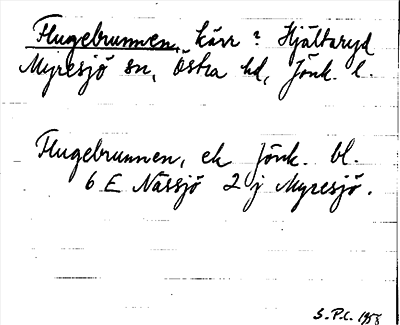 Flugebrunnen, kärr? Hjältaryd
Myresjö sn, Östra hd, Jönk. l.
Flugebrunnen, ek Jönk. bl.
6 E Nässjö 2 j Myresjö.
S.P.C. 1958